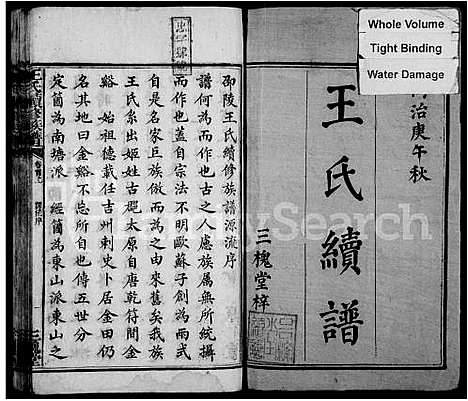 Whole Volume
Tight Binding
Water Damage
治庚午秋
王氏續譜
三槐堂梓
邵陵王氏續修族譜源流序
譜何為而作也古之人慮族屬無所統攝
而作也蓋自宗法不明歐蘇子創為兩式
自是名家巨族倣而為之由來舊矣我族
王氏系出姬姓古魏太原自唐乾符間金
谿 始祖德載任吉州刺史卜居金田仍
名其地曰金谿不忘所自也傳五世分
定箇為南塘派 經箇為東山派東山之
FamilySearch